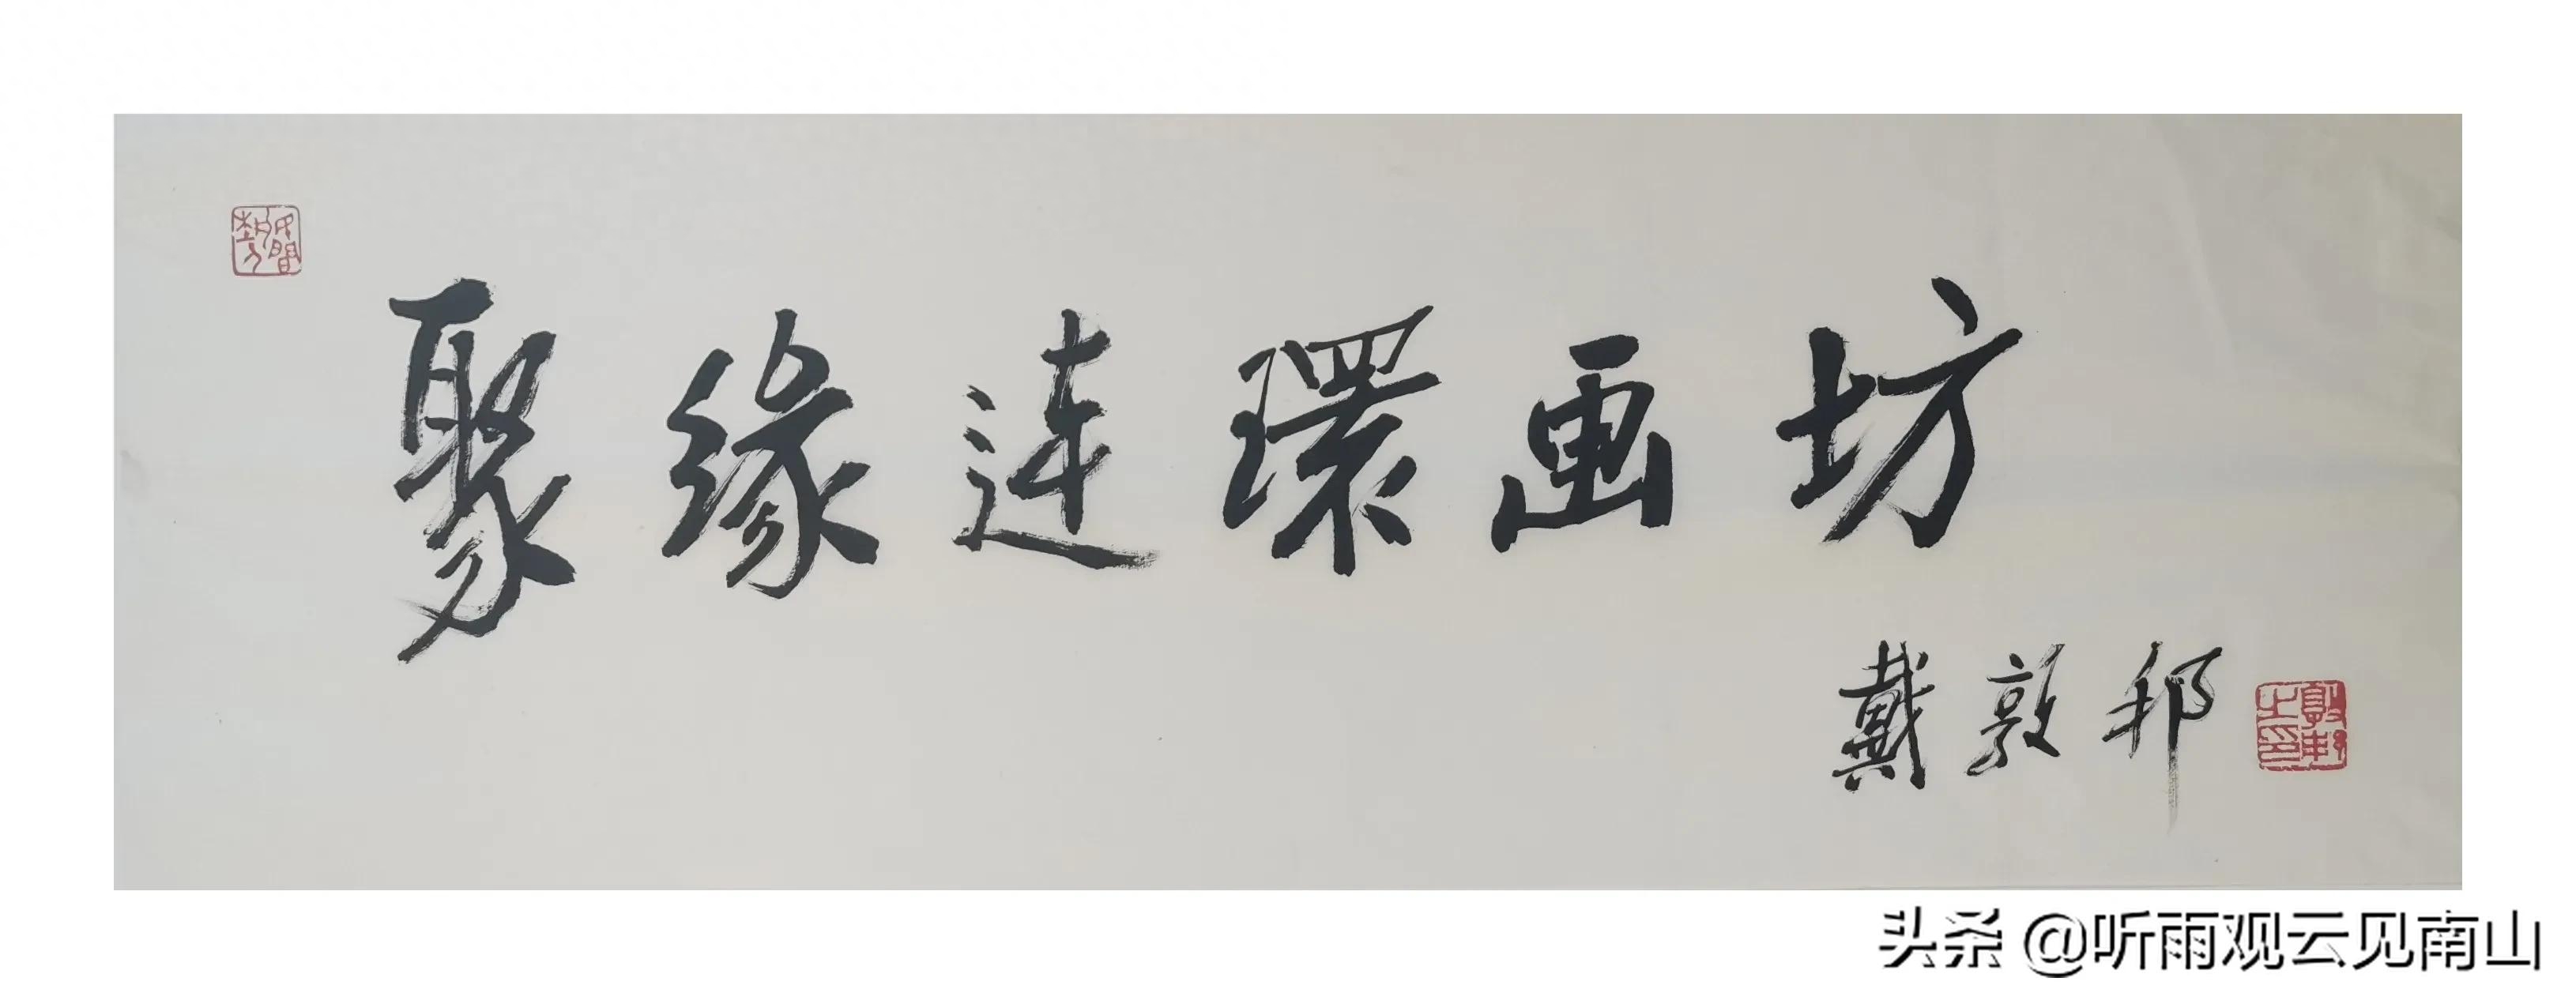 聚缘连環画坊
戴敦邦
敦邦之印
头条 @听雨观云见南山